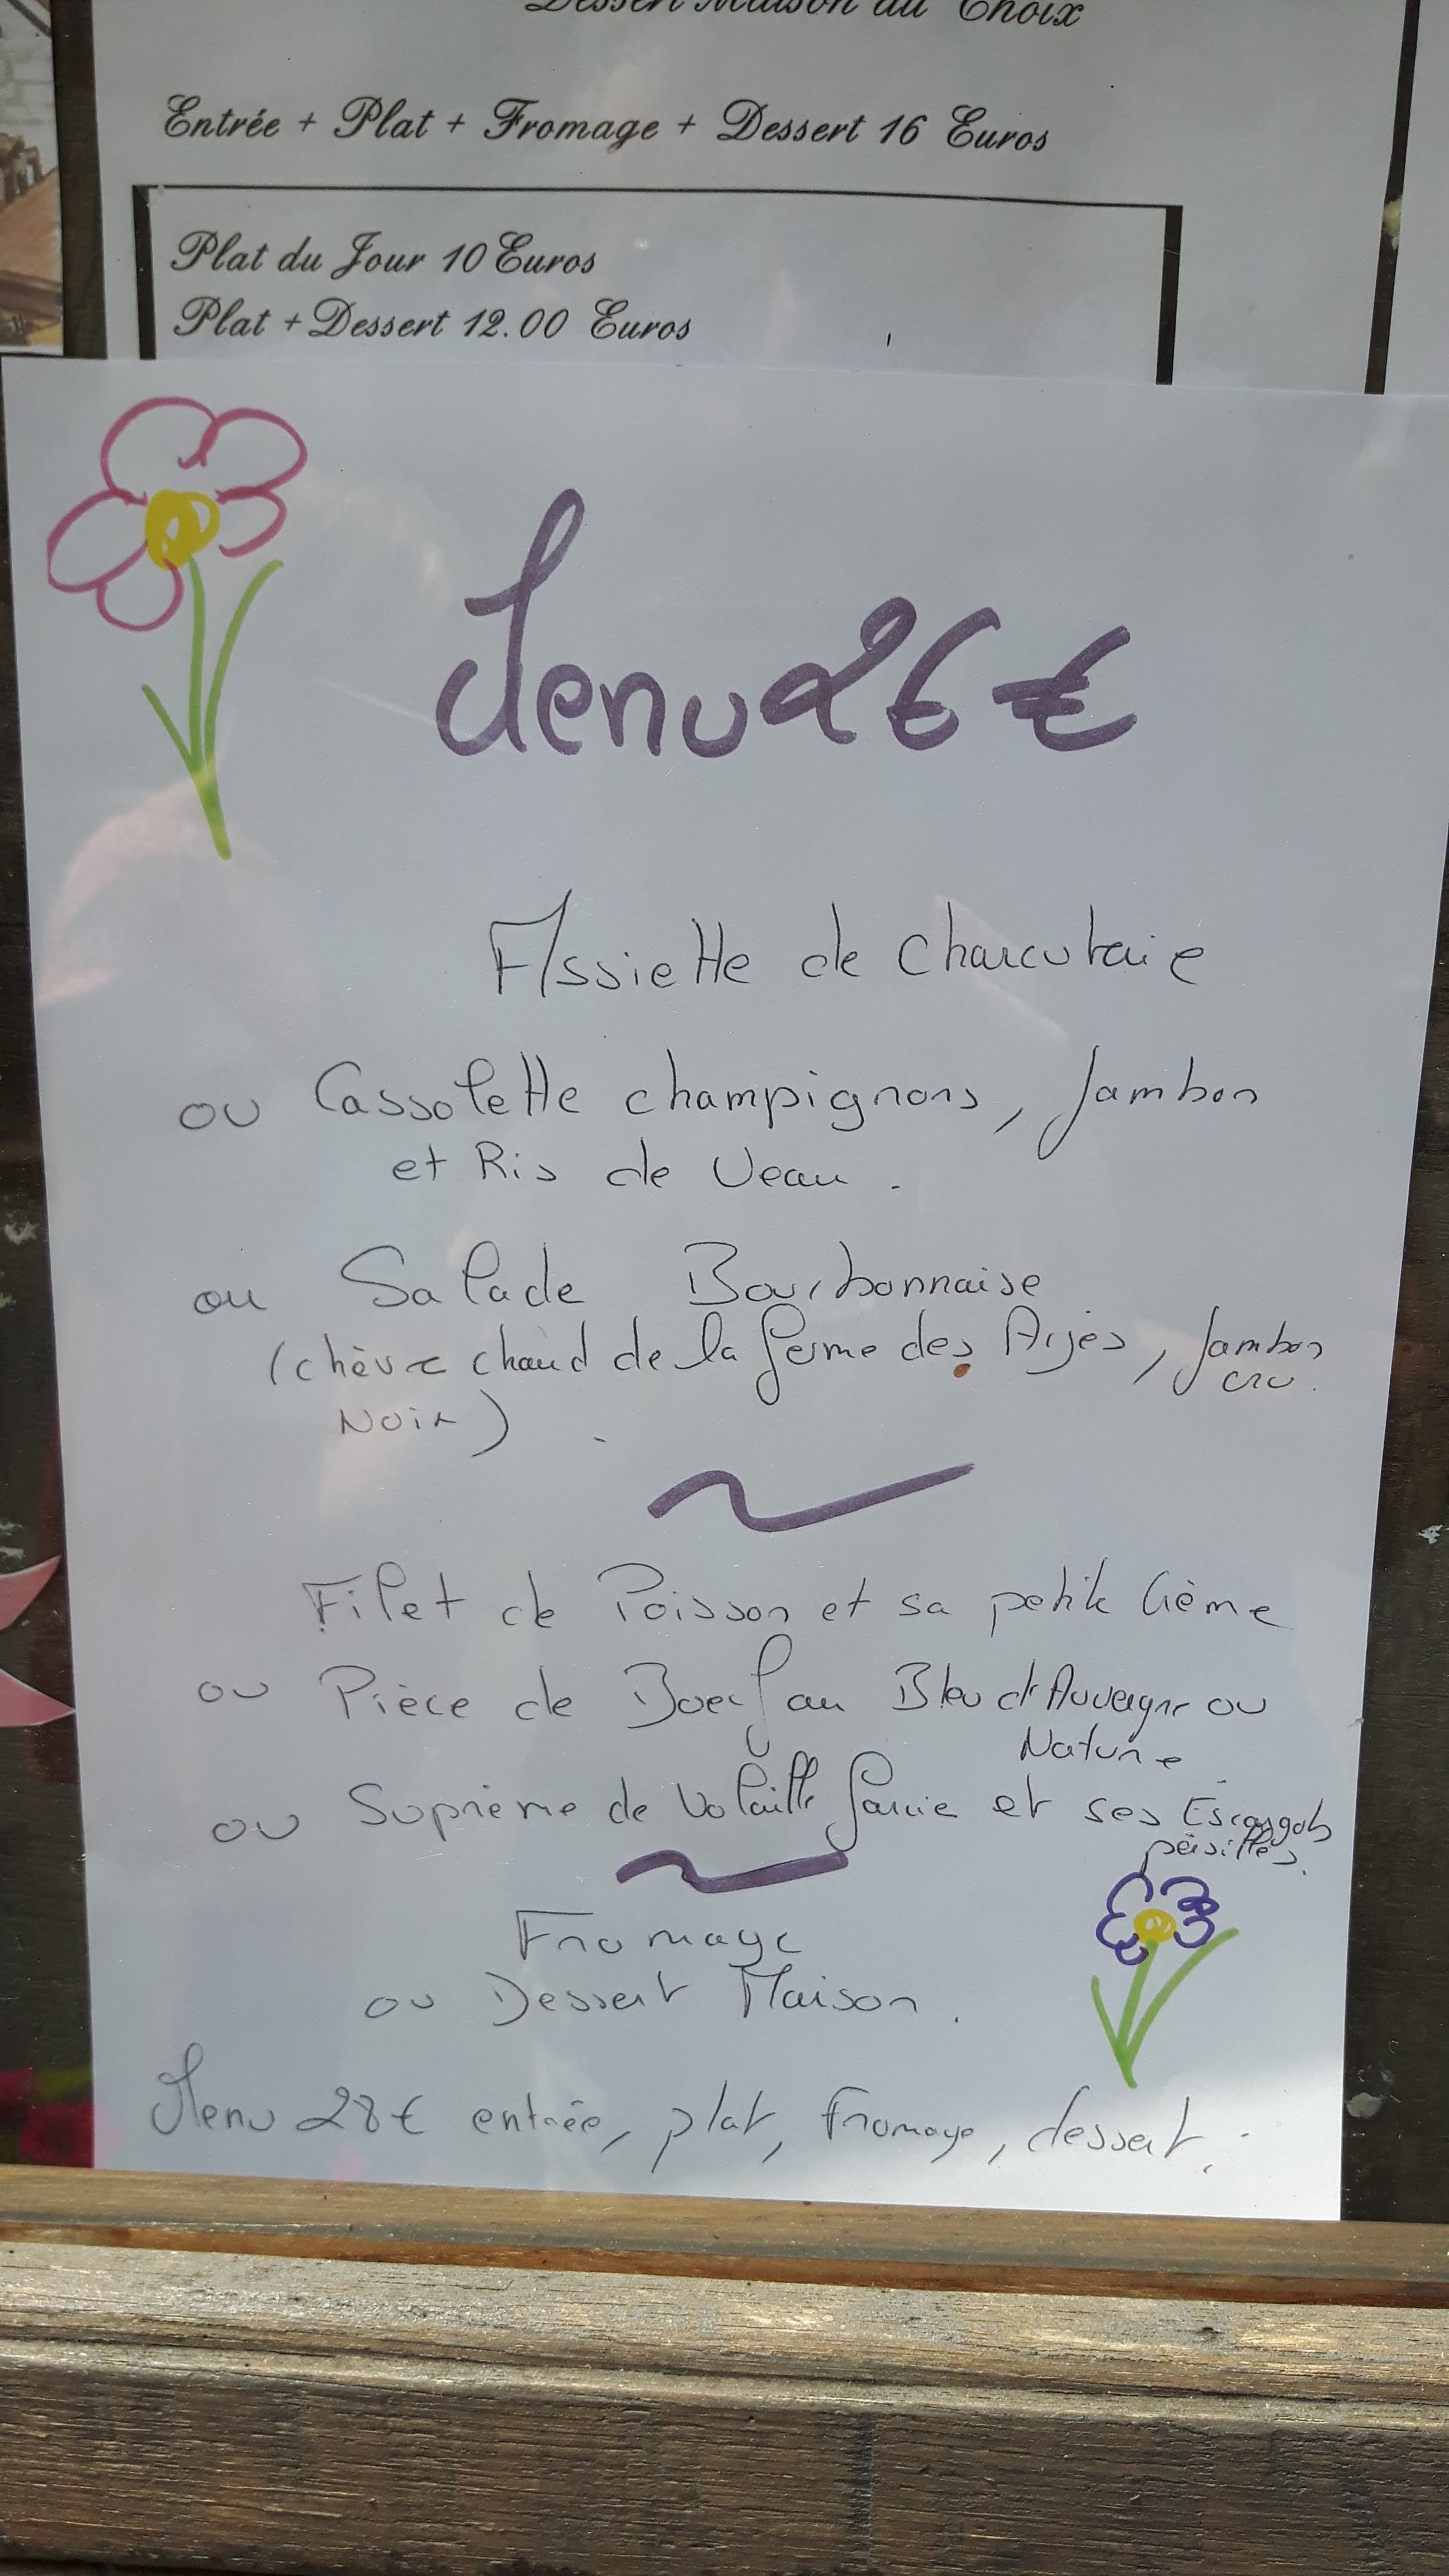 Dessert Maison au Choix
Entrée + Plat + Fromage + Dessert 16 Euros
Plat du Jour 10 Euros
Plat + Dessert 12.00 Euros
Menu 26€
Assiette de Charcuterie
ou Cassolette champignons, Jambon
et Ris de Veau.
ou Salade Bourbonnaise
(chèvre chaud de la ferme des, Jambon
cru
Noix)
Filet de Poisson et sa petite Crème
ou Pièce de Boeuf au Bleu d'Auvergne ou
Nature
ou Suprême de Volaille farcie et ses Escargots
persillés.
Fromage
ou Dessert Maison.
Menu 28€ entrée, plat, fromage, dessert.